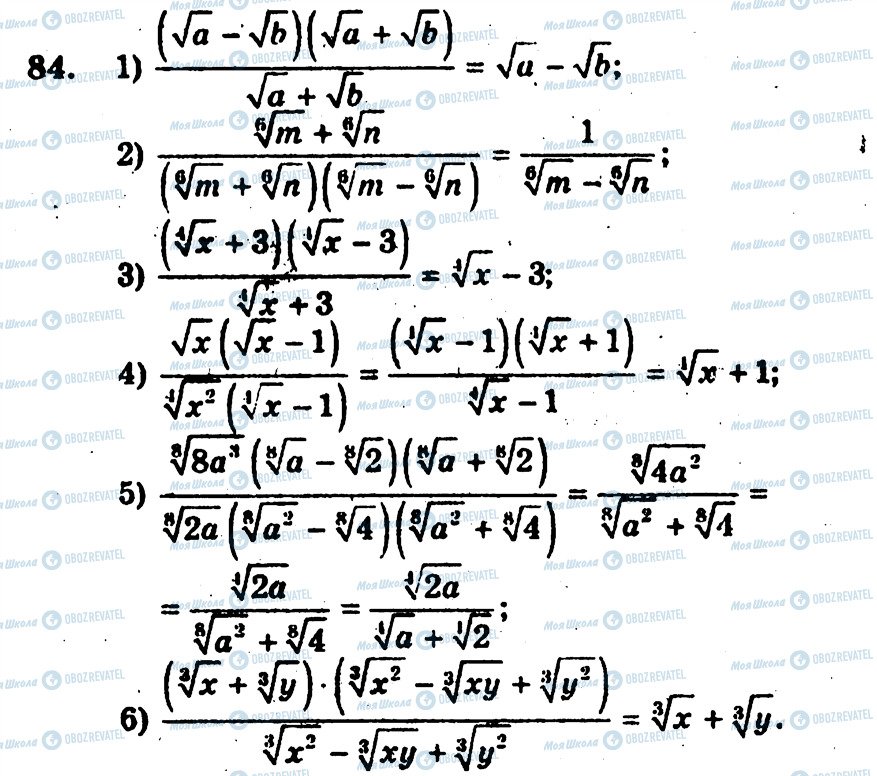 84. 1) \frac{(\sqrt{a} - \sqrt{b})(\sqrt{a} + \sqrt{b})}{\sqrt{a} + \sqrt{b}} = \sqrt{a} - \sqrt{b};
2) \frac{\sqrt[6]{m} + \sqrt[6]{n}}{(\sqrt[6]{m} + \sqrt[6]{n})(\sqrt[6]{m} - \sqrt[6]{n})} = \frac{1}{\sqrt[6]{m} - \sqrt[6]{n}};
3) \frac{(\sqrt[4]{x} + 3)(\sqrt[4]{x} - 3)}{\sqrt[4]{x} + 3} = \sqrt[4]{x} - 3;
4) \frac{\sqrt{x}(\sqrt{x} - 1)}{\sqrt[4]{x^2}(\sqrt[4]{x} - 1)} = \frac{(\sqrt[4]{x} - 1)(\sqrt[4]{x} + 1)}{\sqrt[4]{x} - 1} = \sqrt[4]{x} + 1;
5) \frac{\sqrt[8]{8a^3}(\sqrt[8]{a} - \sqrt[8]{2})(\sqrt[8]{a} + \sqrt[8]{2})}{\sqrt[8]{2a}(\sqrt[8]{a^2} - \sqrt[8]{4})(\sqrt[8]{a^2} + \sqrt[8]{4})} = \frac{\sqrt[8]{4a^2}}{\sqrt[8]{a^2} + \sqrt[8]{4}} =
= \frac{\sqrt[4]{2a}}{\sqrt[8]{a^2} + \sqrt[8]{4}} = \frac{\sqrt[4]{2a}}{\sqrt[4]{a} + \sqrt[4]{2}};
6) \frac{(\sqrt[3]{x} + \sqrt[3]{y}) \cdot (\sqrt[3]{x^2} - \sqrt[3]{xy} + \sqrt[3]{y^2})}{\sqrt[3]{x^2} - \sqrt[3]{xy} + \sqrt[3]{y^2}} = \sqrt[3]{x} + \sqrt[3]{y}.
Моя Школа OBOZREVATEL